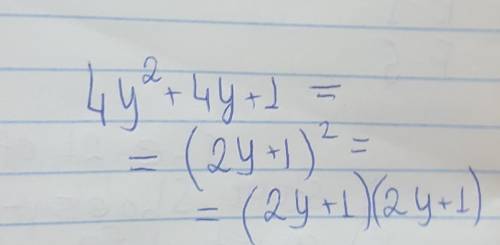 4y² + 4y + 1 =
= (2y + 1)² =
= (2y + 1)(2y + 1)